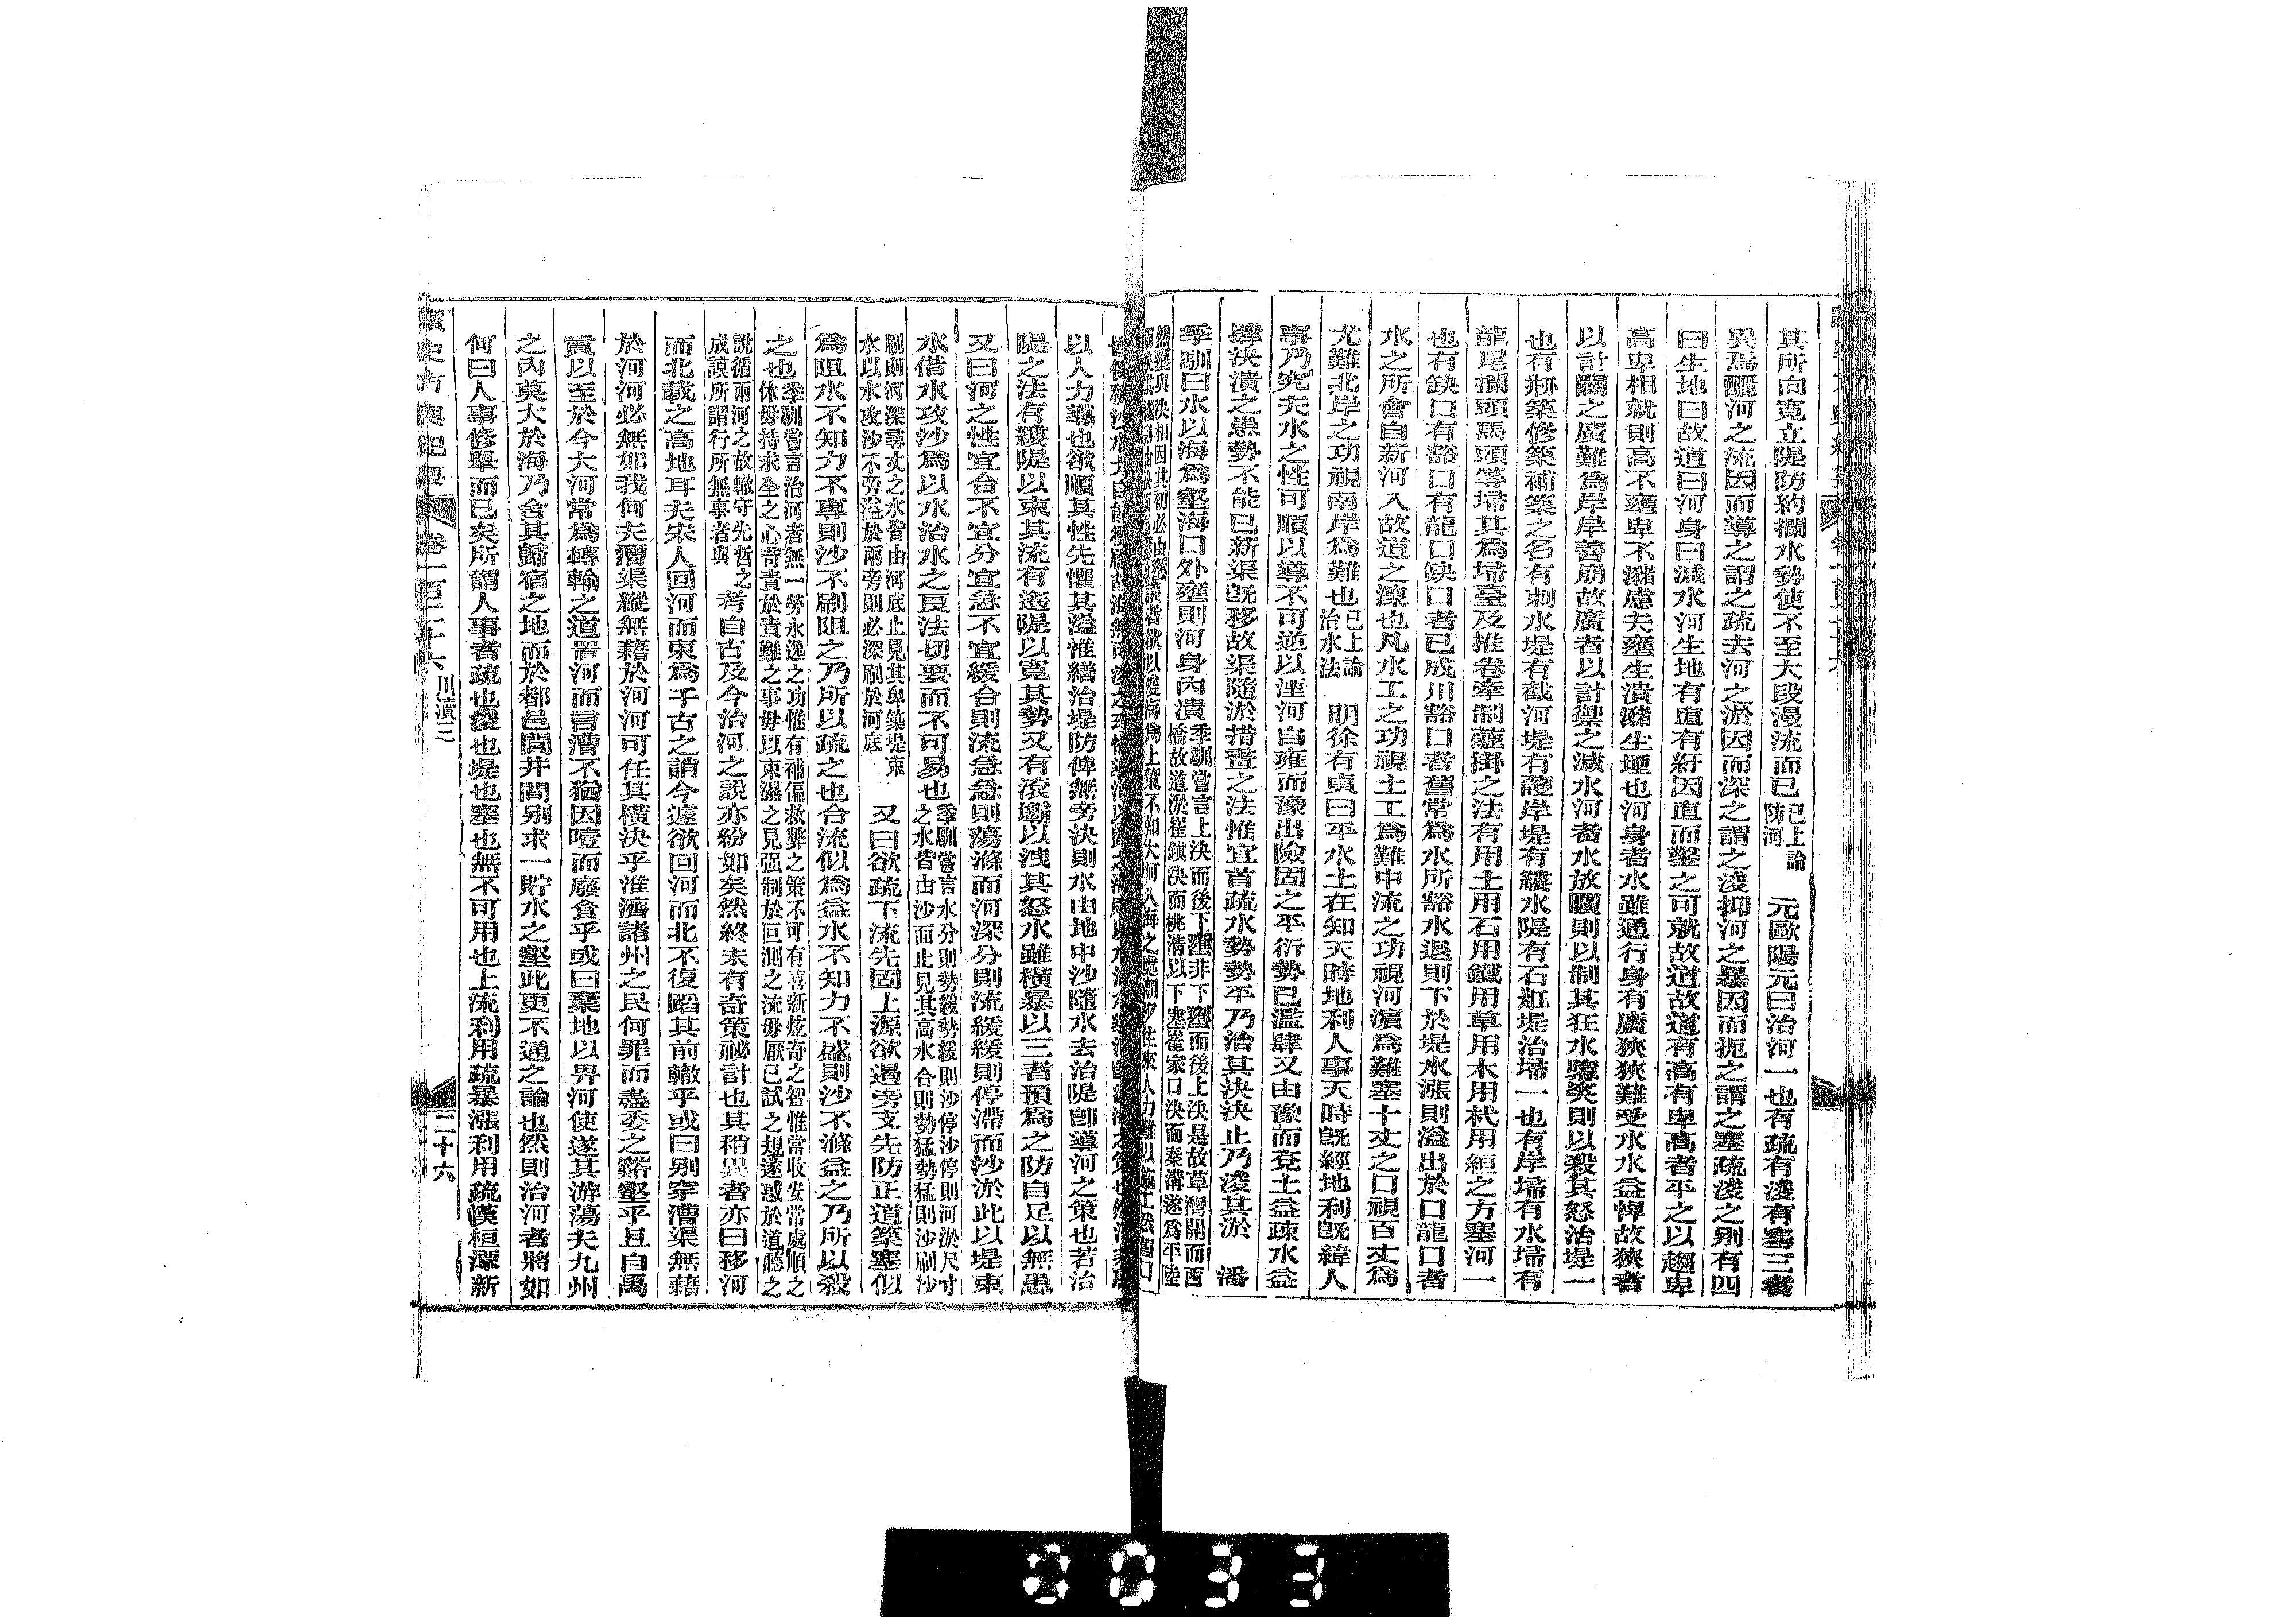 其所向寬立隄防約攔水勢使不至大段漫流而已已上論防河 元歐陽元曰治河一也有疏有浚有塞三者
異焉釃河之流因而導之謂之疏去河之淤因而深之謂之浚抑河之暴因而扼之謂之塞疏浚之别有四
曰生地曰故道曰河身曰減水河生地有直有紆因直而鑿之可就故道故道有高有卑高者平之以趨卑
高卑相就則高不壅卑不瀦慮夫壅生潰瀦生堙也河身者水雖通行身有廣狹狹難受水水益悍故狹者
以計闢之廣難為岸岸善崩故廣者以計禦之減水河者水放曠則以制其狂水隳突則以殺其怒治堤一
也有剙築修築補築之名有刺水堤有截河堤有護岸堤有縷水隄有石船堤治埽一也有岸埽有水埽有
龍尾攔頭馬頭等埽其為埽臺及推卷牽制薶掛之法有用土用石用鐵用草用木用杙用絙之方塞河一
也有缺口有豁口有龍口缺口者已成川豁口者舊常為水所豁水退則下於堤水漲則溢出於口龍口者
水之所會自新河入故道之潨也凡水工之功視土工為難中流之功視河濱為難塞十丈之口視百丈為
尤難北岸之功視南岸為難也已上論治水法 明徐有貞曰平水土在知天時地利人事天時旣經地利旣緯人
事乃究夫水之性可順以導不可逆以湮河自雍而豫出險固之平衍勢已濫肆又由豫而兗土益疎水益
肆決潰之患勢不能已新渠旣移故渠隨淤措置之法惟宜首疏水勢勢平乃治其決決止乃浚其淤 潘
季馴曰水以海為壑海口外壅則河身內潰季馴嘗言上決而後下壅非下壅而後上決是故草灣開而西橋故道淤崔鎮決而桃清以下塞崔家口決而秦溝遂為平陸
以人力導也欲順其性先懼其溢惟繕治堤防俾無旁決則水由地中沙隨水去治隄卽導河之策也若治
隄之法有縷隄以束其流有遙隄以寬其勢又有滾壩以洩其怒水雖橫暴以三者預為之防自足以無患
又曰河之性宜合不宜分宜急不宜緩合則流急急則蕩滌而河深分則流緩緩則停滯而沙淤此以堤束
水借水攻沙為以水治水之良法切要而不可易也季馴嘗言水分則勢緩勢緩則沙停沙停則河淤尺寸之水皆由沙面止見其高水合則勢猛勢猛則沙刷沙
刷則河深尋丈之水皆由河底止見其卑築堤束水以水攻沙不旁溢於兩旁則必深刷於河底 又曰欲疏下流先固上源欲遏旁支先防正道築塞似
為阻水不知力不專則沙不刷阻之乃所以疏之也合流似為益水不知力不盛則沙不滌益之乃所以殺
之也季馴嘗言治河者無一勞永逸之功惟有補偏救弊之策不可有喜新炫奇之智惟當收安常處順之休毋持求全之心苛責於責難之事毋以束濕之見强制於叵測之流毋厭已試之規遂惑於道聽之
說循兩河之故轍守先哲之成謨所謂行所無事者與 考自古及今治河之說亦紛如矣然終未有奇策祕計也其稍異者亦曰移河
而北載之高地耳夫宋人回河而東為千古之誚今遠欲回河而北不復蹈其前轍乎或曰别穿漕渠無藉
於河河必無如我何夫漕渠縱無藉於河河可任其橫決乎淮濟諸州之民何罪而盡委之谿壑乎且自禹
貢以至於今大河常為轉輸之道置河而言漕不猶因噎而廢食乎或曰棄地以畀河使遂其游蕩夫九州
之內莫大於海乃舍其歸宿之地而於都邑閭井間别求一貯水之壑此更不通之論也然則治河者將如
何曰人事修舉而已矣所謂人事者疏也浚也堤也塞也無不可用也上流利用疏暴漲利用疏漢桓譚新
讀史方輿紀要 卷一百二十六 川瀆三 二十六
0033